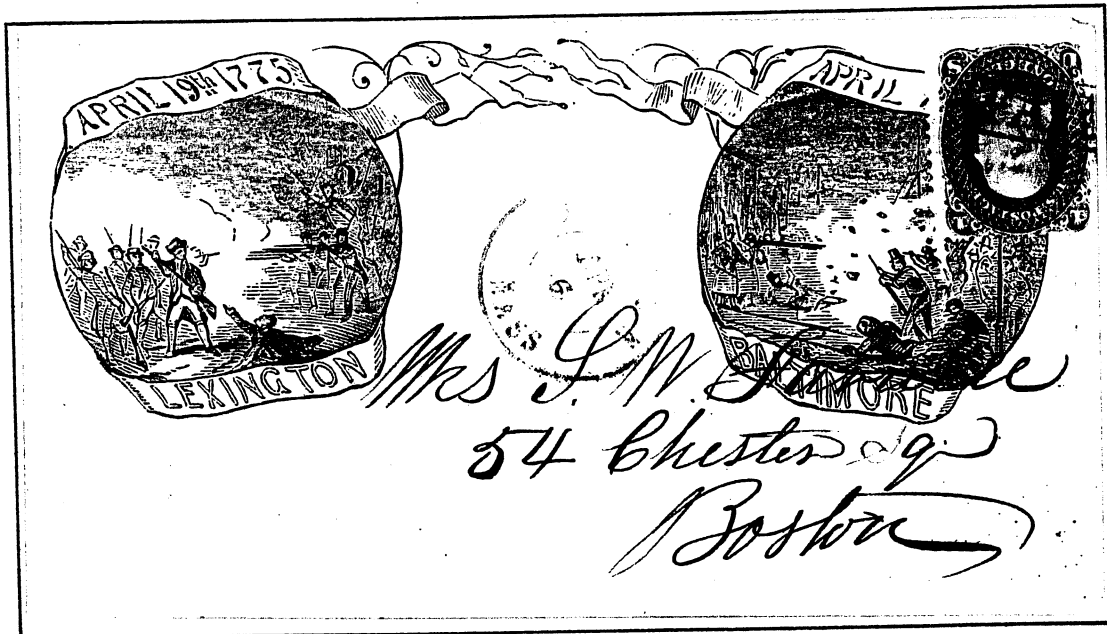 APRIL 19th 1775
APRIL
LEXINGTON
BALTIMORE
Mrs S. W.
54 Chester Sq
Boston